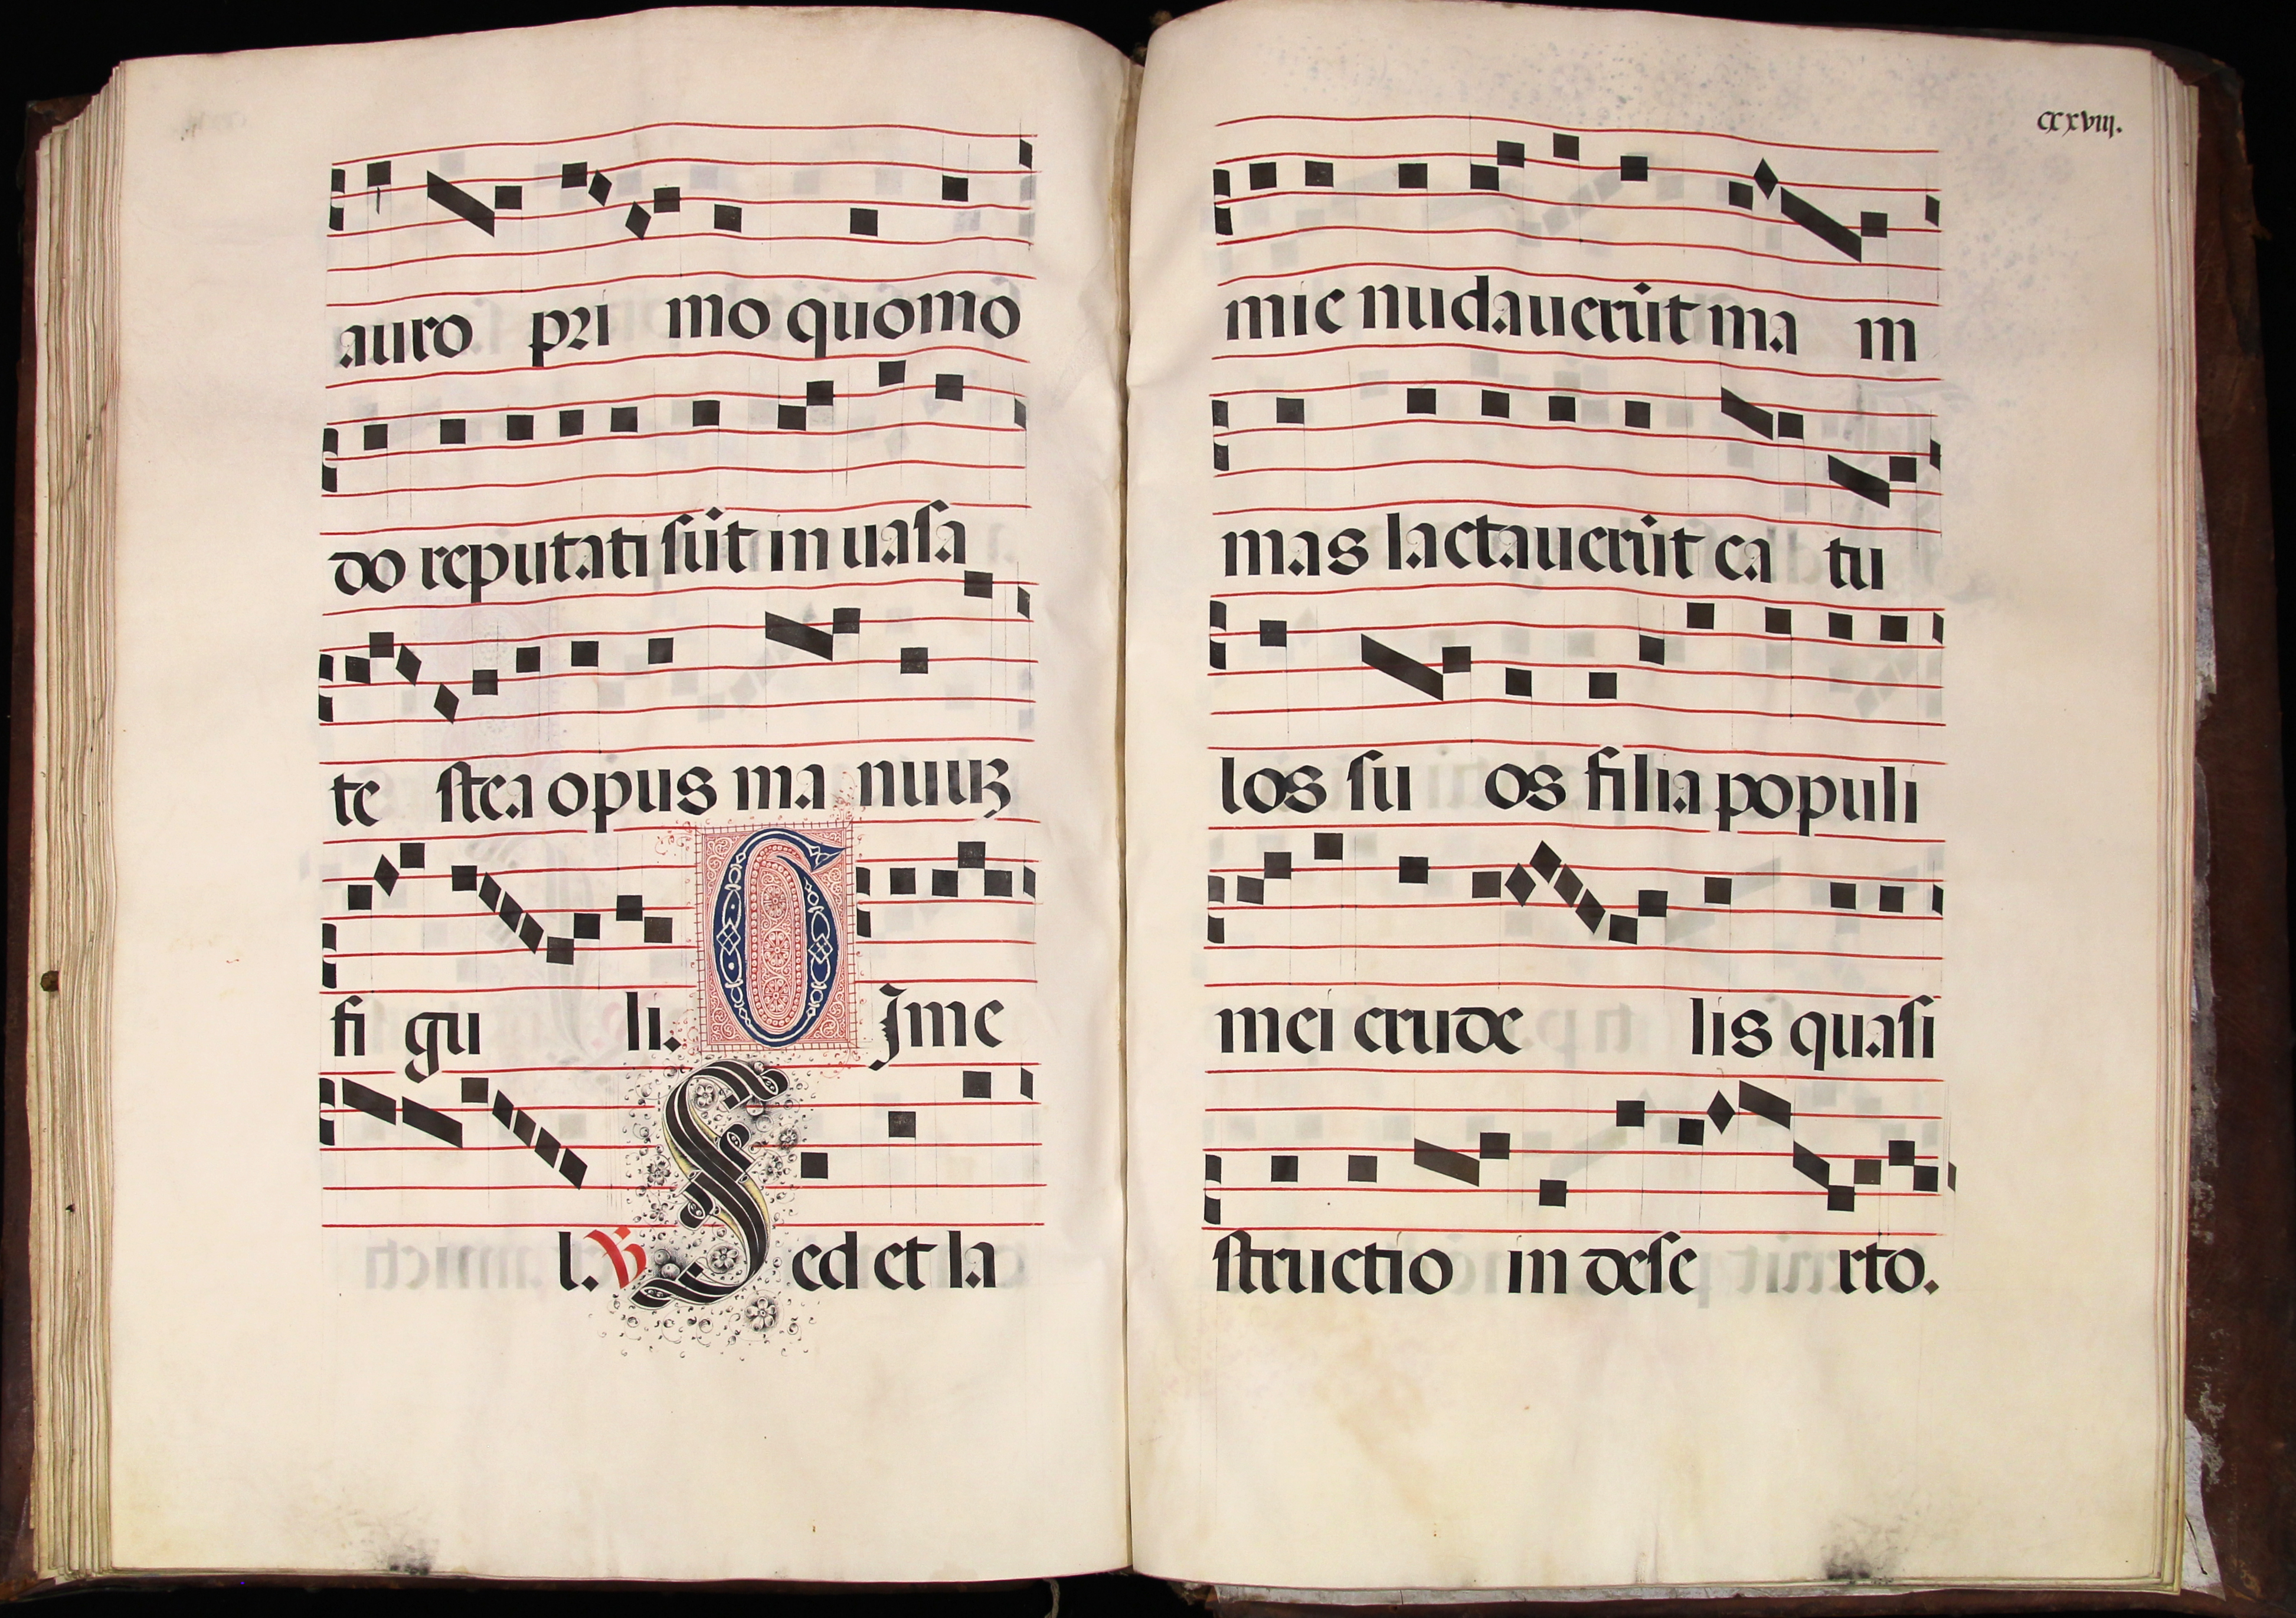 auro pri mo quomō
do reputati sūt in uasa
te stea opus ma nuuꝫ
fi gu li. G Ime
l. V Sed et la
CXXVIII.
mie nudauerūt ma m
mas lactauerūt ca tu
los su os filia populi
mei crude lis quasi
structio in dese rto.